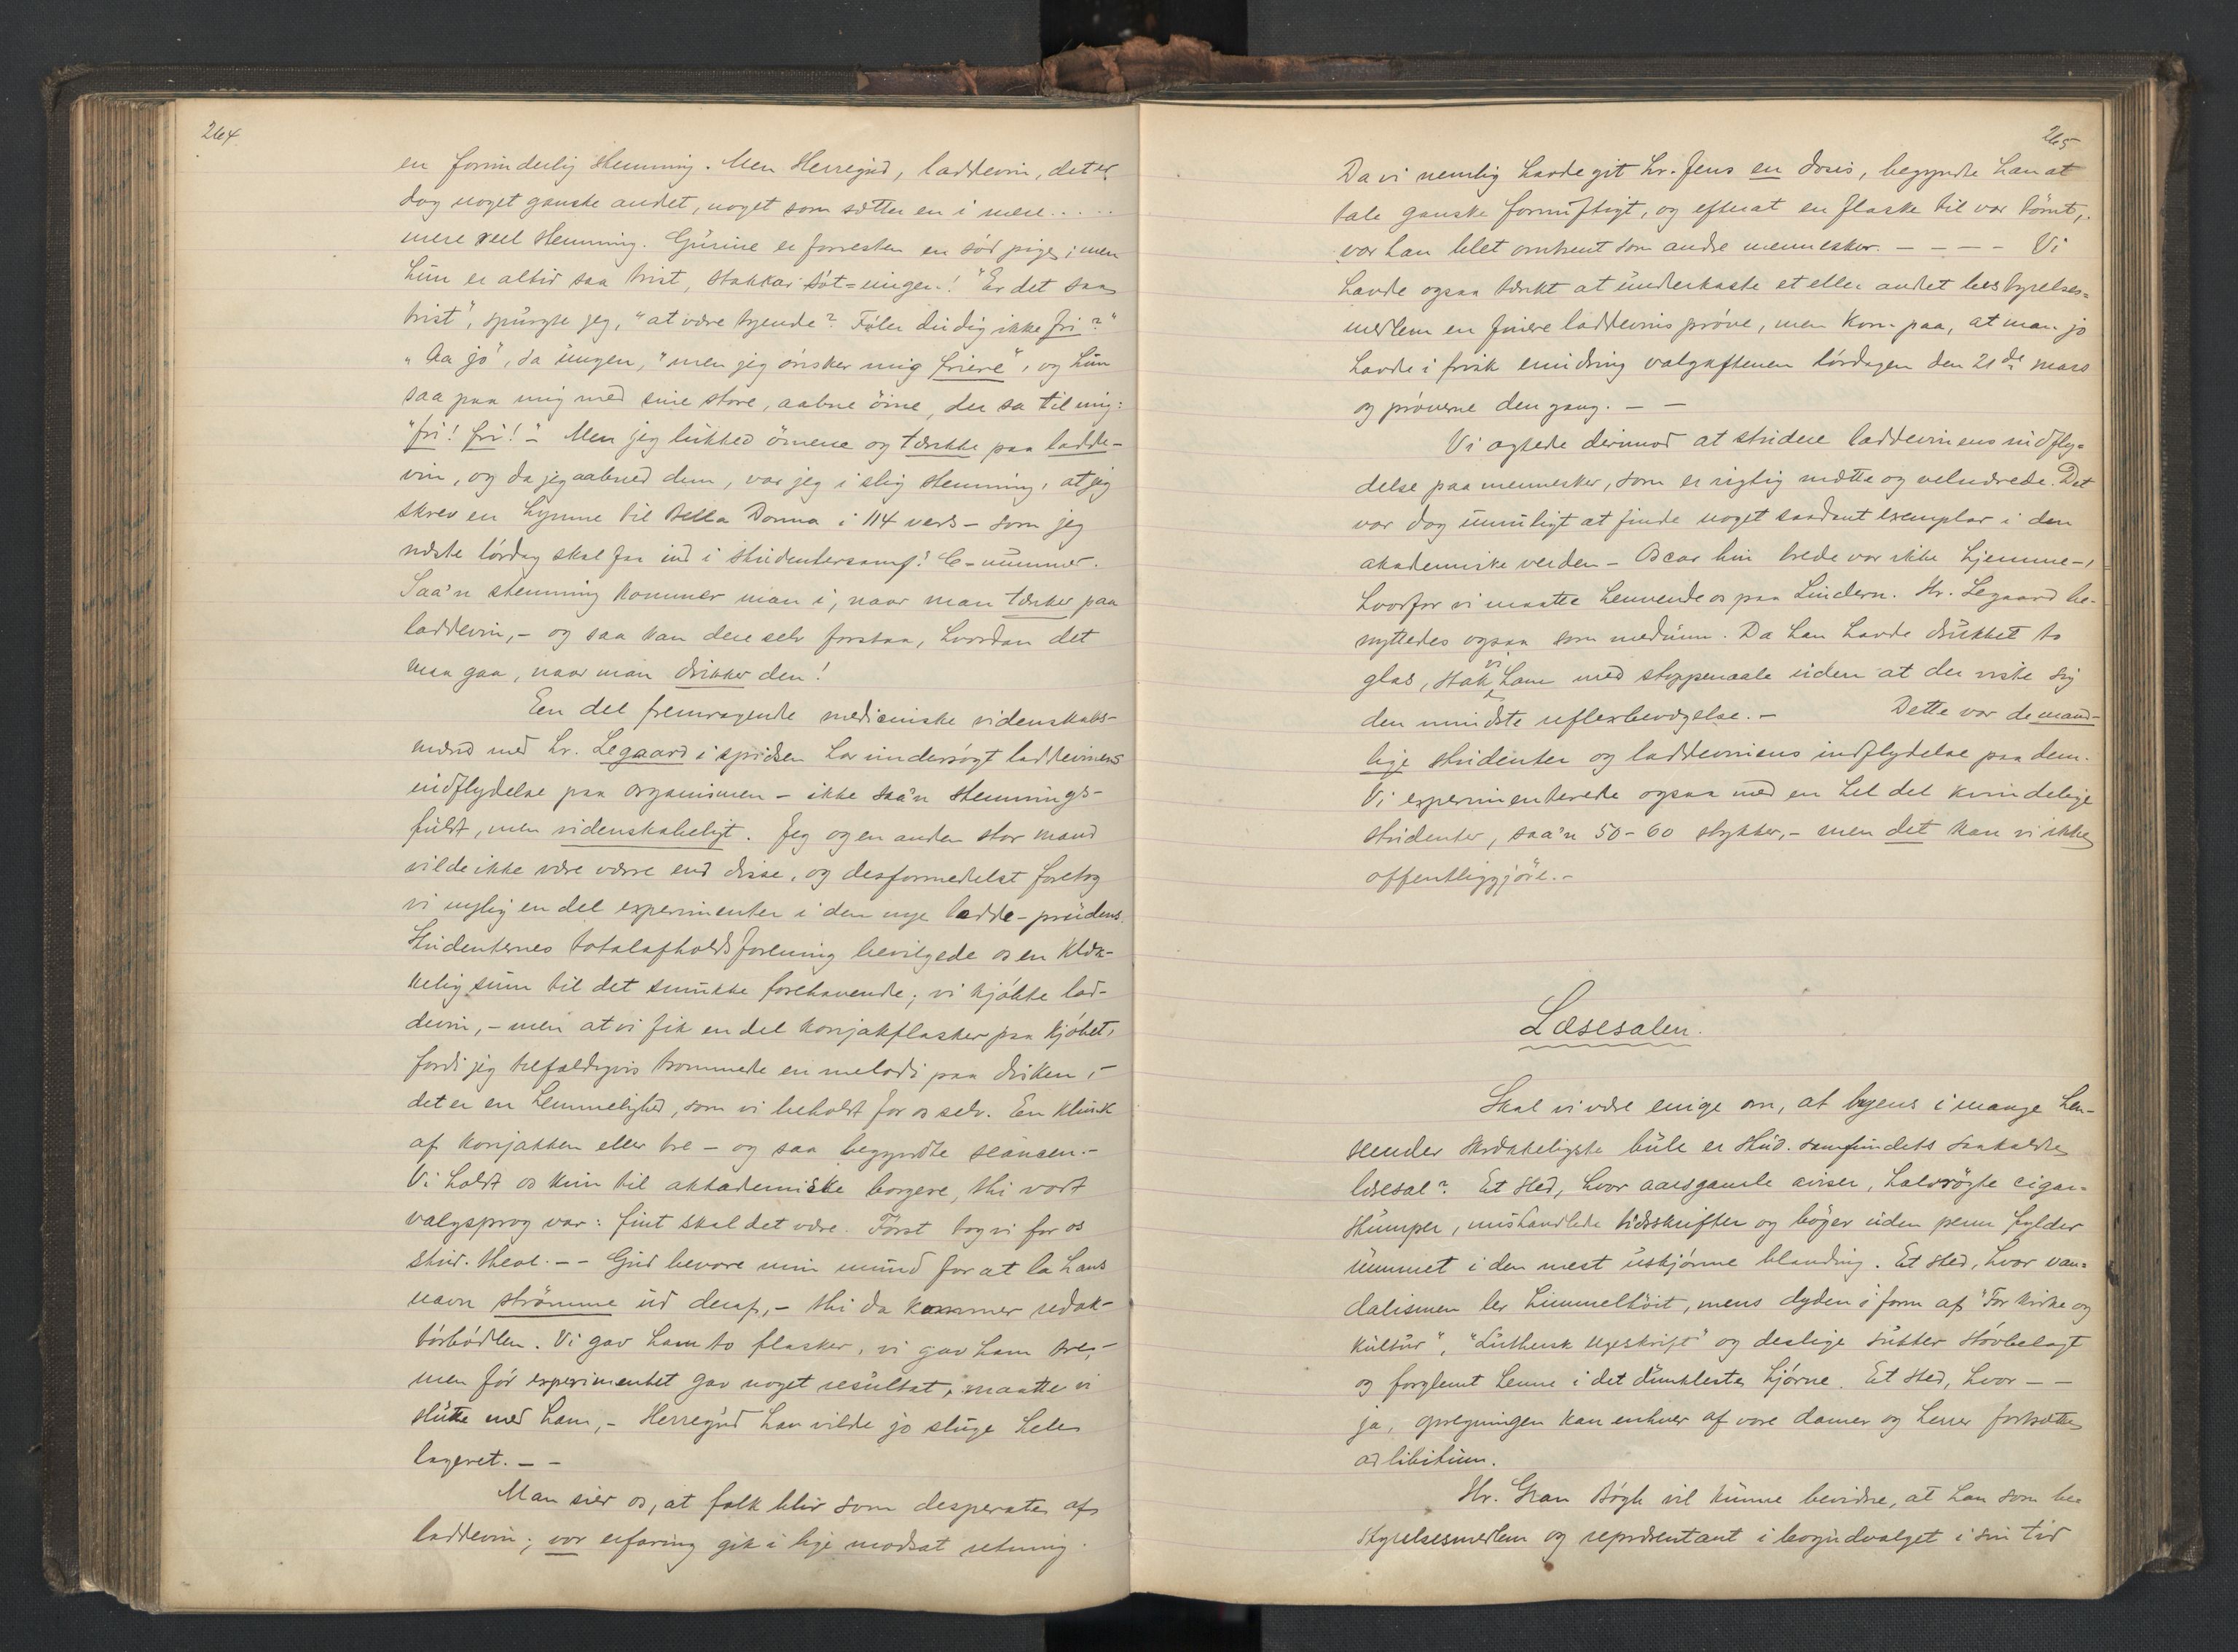 264.
en forunderlig stemning. Men Herregud, laddevin, det er
dog noget ganske andet, noget som sætter en i mere.....
mere reel stemning. Gurine er forresten en sød pige; men
hun er altid saa trist, stakkar søt-ungen! "Er det saa
trist", spurgte jeg, "at være tyende? Føler du dig ikke fri?"
"Aa jo", sa ungen, "men jeg ønsker mig friere", og hun
saa paa mig med sine store, aabne øine, der sa til mig:
"fri! fri!" - Men jeg lukked øinene og tænkte paa ladde-
vin, og da jeg aabned dem, var jeg i slig stemning, at jeg
skrev en hymne til Bella Donna i 114 vers - som jeg
næste lørdag skal faa ind i studentersamf.s C-nummer.
Saa'n stemning kommer man i, naar man tænker paa
laddevin, - og saa kan dere selv forstaa, hvordan det
maa gaa, naar man drikker den!
En del fremragende medicinske videnskabs-
mænd med hr. Legaard i spidsen har undersøgt laddevinens
indflydelse paa organismen - ikke saa'n stemnings-
fuldt, men videnskabeligt. Jeg og en anden stor mand
vilde ikke være værre end disse, og desformedelst foretog
vi nylig en del experimenter i den nye ladde-prüdens.
Studenternes totalafholdsforening bevilgede os en klæk-
kelig sum til det smukke forehavende; vi kjøbte lad-
devin, - men at vi fik en del konjakflasker paa kjøbet,
fordi jeg tilfældigvis trommede en melodi paa disken, -
det er en hemmelighed, som vi beholdt for os selv. En klunk
af konjakken eller tre - og saa begyndte séancen. -
Vi holdt os kun til akkademiske borgere, thi vort
valgsprog var: fint skal det være. Først tog vi for os
stud. theol. - - Gud bevare min mund for at la hans
navn strømme ud deraf, - thi da kommer redak-
tørbødlen. Vi gav ham to flasker, vi gav ham tre, -
men før experimentet gav noget resultat, maatte vi
slutte med ham, - Herregud han vilde jo sluge hele
lageret. - -
Man sier os, at folk blir som desperate af
laddevin; vor erfaring gik i lige modsat retning.
265
Da vi nemlig havde git hr. Jens en dosis, begyndte han at
tale ganske fornuftigt, og efterat en flaske til var tømt,
var han blet omtrent som andre mennesker. - - - - Vi
havde ogsaa tænkt at underkaste et eller andet bestyrelses=
medlem en finere laddevinsprøve, men kom paa, at man jo
havde i frisk erindring valgaftenen lørdagen den 21de mars
og prøverne den gang. - -
Vi agtede derimod at studere laddevinens indfly=
delse paa mennesker, som er rigtig mætte og velnærede. Det
var dog umuligt at finde noget saadant exemplar i den
akademiske verden - Oscar hin brede var ikke hjemme -,
hvorfor vi maatte henvende os paa Lindern. Hr. Legaard be-
nyttedes ogsaa som medium. Da han havde drukket to
glas, stak vi ham med stoppenaale uden at der viste sig
den mindste reflexbevægelse. - Dette var de mand-
lige studenter og laddevinens indflydelse paa dem.
Vi experimenterede ogsaa med en hel del kvindelige
studenter, saa'n 50-60 stykker, - men det kan vi ikke
offentliggjøre. -
Læsesalen.
Skal vi være enige om, at byens i mange hen-
seender skrækkeligste bule er stud. samfundets saakaldte
læsesal? Et sted, hvor aarsgamle aviser, halvrøgte cigar=
stumper, mishandlede tidsskrifter og bøger uden perm fylder
rummet i den mest uskjønne blanding. Et sted, hvor van=
dalismen ler himmelhøit, mens dyden i form af "For kirke og
kultur", "Luthersk Ugeskrift" og deslige sukker støvbelagt
og forglemt henne i det dunkleste hjørne. Et sted, hvor - -
ja, opregningen kan enhver af vore damer og herrer fortsætte
ad libitum.
Hr. Gran Bøgh vil kunne bevidne, at han som be-
styrelsesmedlem og repræsentant i bogudvalget i sin tid